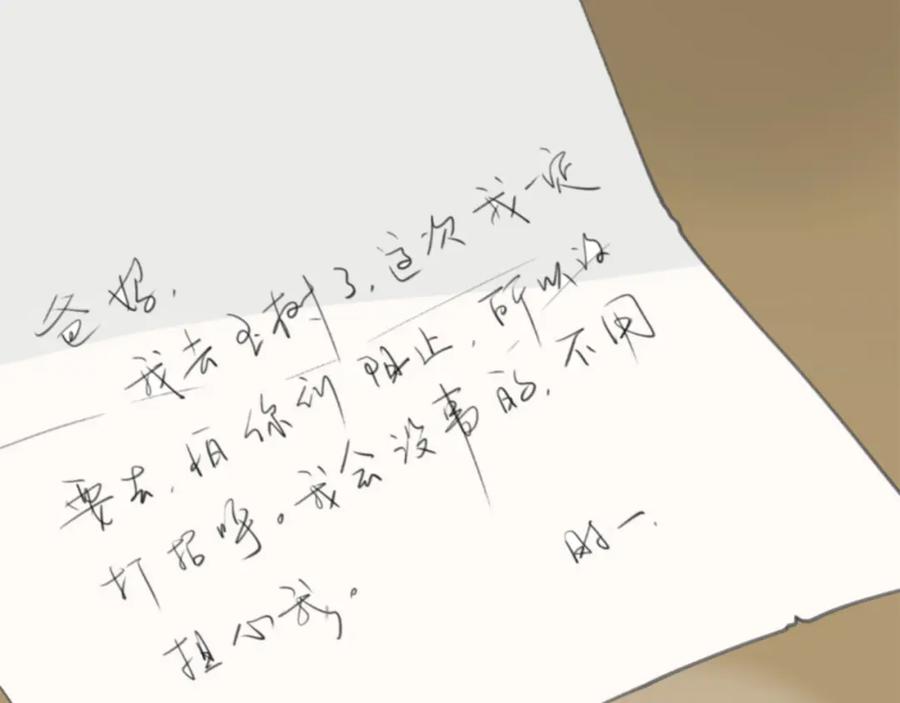 爸妈,
我去玉树了,这次我一定
要去,怕你们阻止,所以没
打招呼。我会没事的,不用
担心我。
时一.